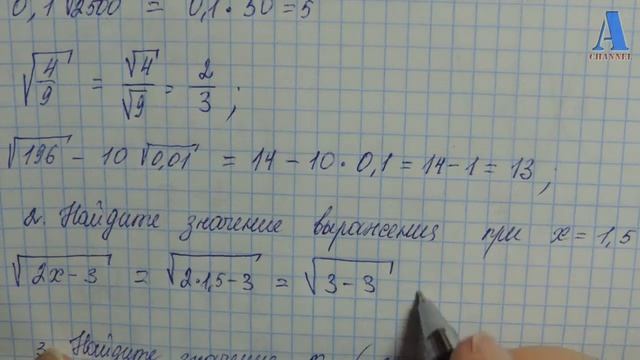 0,1√2500 = 0,1·50=5
A
CHANNEL
√4/9 = √4/√9 = 2/3;
√196 - 10√0,01 = 14 - 10·0,1 = 14-1 = 13;
2. Найдите значение выражения при x=1,5
√2x-3 = √2·1,5-3 = √3-3
3. Найдите значение